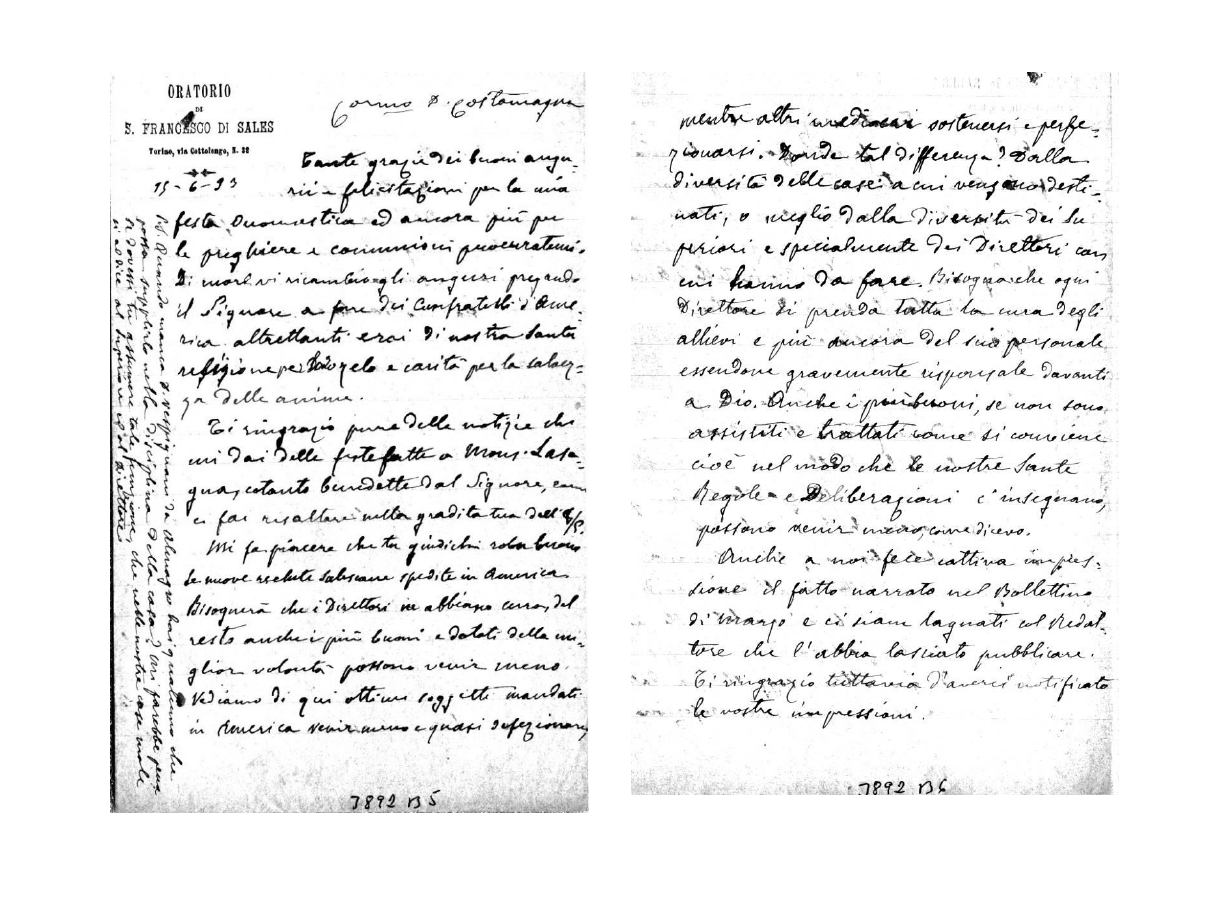 ORATORIO
DI
S. FRANCESCO DI SALES
Torino, via Cottolengo, N. 32
15-6-93
Carmo D. Costamagna
Tante grazie dei buoni augu-
rii e felicitazioni per la mia
festa onomastica ed ancora più per
le preghiere e comunioni procuratemi.
Di cuore vi ricambio gli auguri pregando
il Signore a fare dei Confratelli d'Ame-
rica altrettanti eroi di nostra Santa
religione per zelo e carità per la salvez-
za delle anime.
Ti ringrazio pure delle notizie che
mi dai delle feste fatte a Mons. Lasa-
gna, cotanto benedette dal Signore, come
ci fai risaltare nella gradita tua dell'8/5.
Mi fa piacere che tu giudichi roba buona
le nuove reclute Salesiane spedite in America
Bisognerà che i Direttori ne abbiano cura, del
resto anche i più buoni e dotati della mi-
glior volontà possono venir meno.
Vediamo di qui ottimi soggetti mandati
in America venir meno e quasi defezionare,
P.S. Quando manca D. Vespignani da Almagro hai qualcuno che
possa supplirlo nella disciplina della casa? Mi farebbe pena
se dovessi tu assumere tale funzione, che nelle nostre case male
si addice al Superiore ed al direttore
7892 B5
mentre altri mediocri sostenersi e perfe-
zionarsi. Donde tal differenza? Dalla
diversità delle case a cui vengono desti-
nati, o meglio dalla diversità dei Su-
periori e specialmente dei Direttori con
cui hanno da fare. Bisogna che ogni
Direttore si prenda tutta la cura degli
allievi e più ancora del suo personale
essendone gravemente risponsale davanti
a Dio. Anche i più buoni, se non sono
assistiti e trattati come si conviene
cioè nel modo che le nostre Sante
Regole e Deliberazioni c'insegnano,
possono venir meno, come dicevo.
Anche a noi fece cattiva impres-
sione il fatto narrato nel Bollettino
di Marzo e ci siam lagnati col Redat-
tore che l'abbia lasciato pubblicare.
Ti ringrazio tuttavia d'averci notificato
le vostre impressioni.
7892 B6